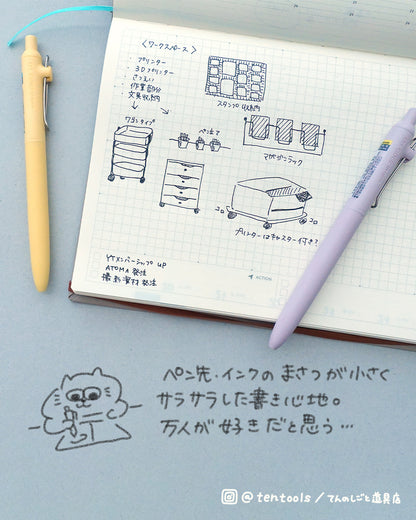 〈ワークスペース〉
・プリンター
・3Dプリンター
・さつえい
・作業部分
・文具収納
スタンプ収納
ワゴンタイプ
ペン立て
マガジンラック
コロ
コロ
プリンターはキャスター付き?
YTメンバーシップ UP
ATOMA 発注
撮影資材発注
ACTION
ペン先・インクのまさつが小さく
サラサラした書き心地。
万人が好きだと思う…
@tentools/てんのしごと道具店